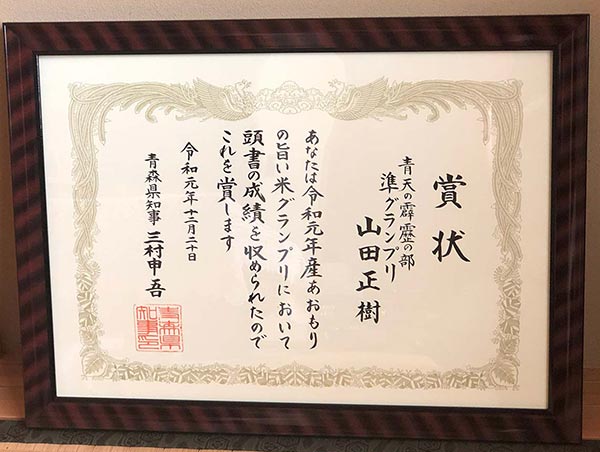 賞状
青天の霹靂の部
準グランプリ
山田正樹
あなたは令和元年産あおもり
の旨い米グランプリにおいて
頭書の成績を収められたので
これを賞します
令和元年十二月二十日
青森県知事 三村申吾
青森県知事印